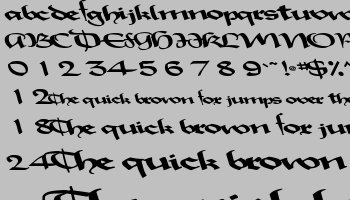 abcdefghijklmnopqrstuvw
ABCDEFGHIJKLMNOP
0 1 2 3 4 5 6 7 8 9 `~ !@#$%^
12The quick brown fox jumps over th
18The quick brown fox ju
24The quick brown